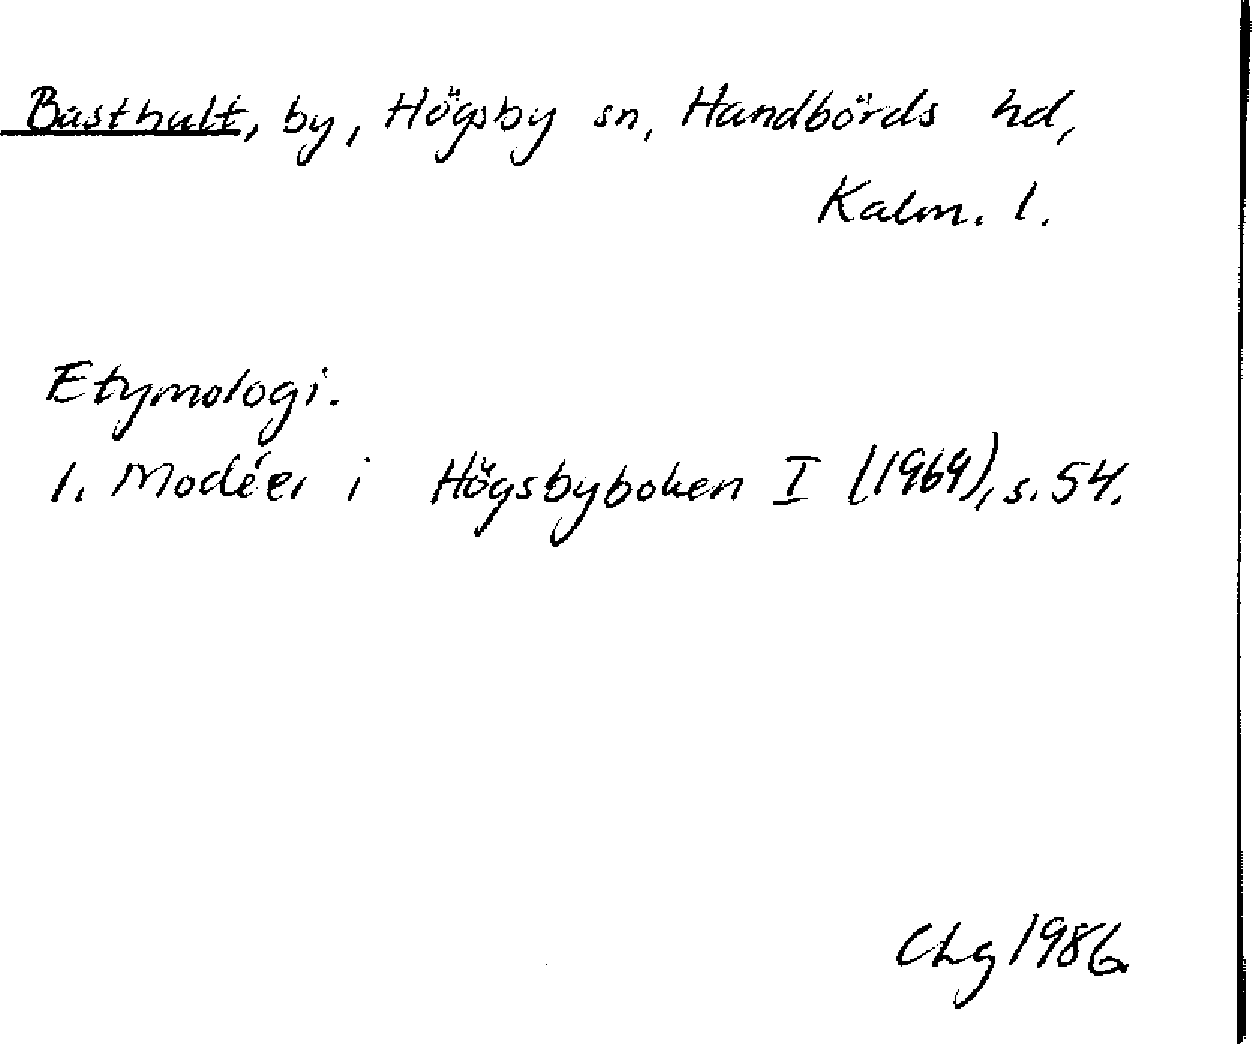 Basthult, by, Högsby sn, Handbörds hd,
Kalm. l.
Etymologi.
1. Modéer i Högsbyboken I (1969), s. 54.
CLg 1986